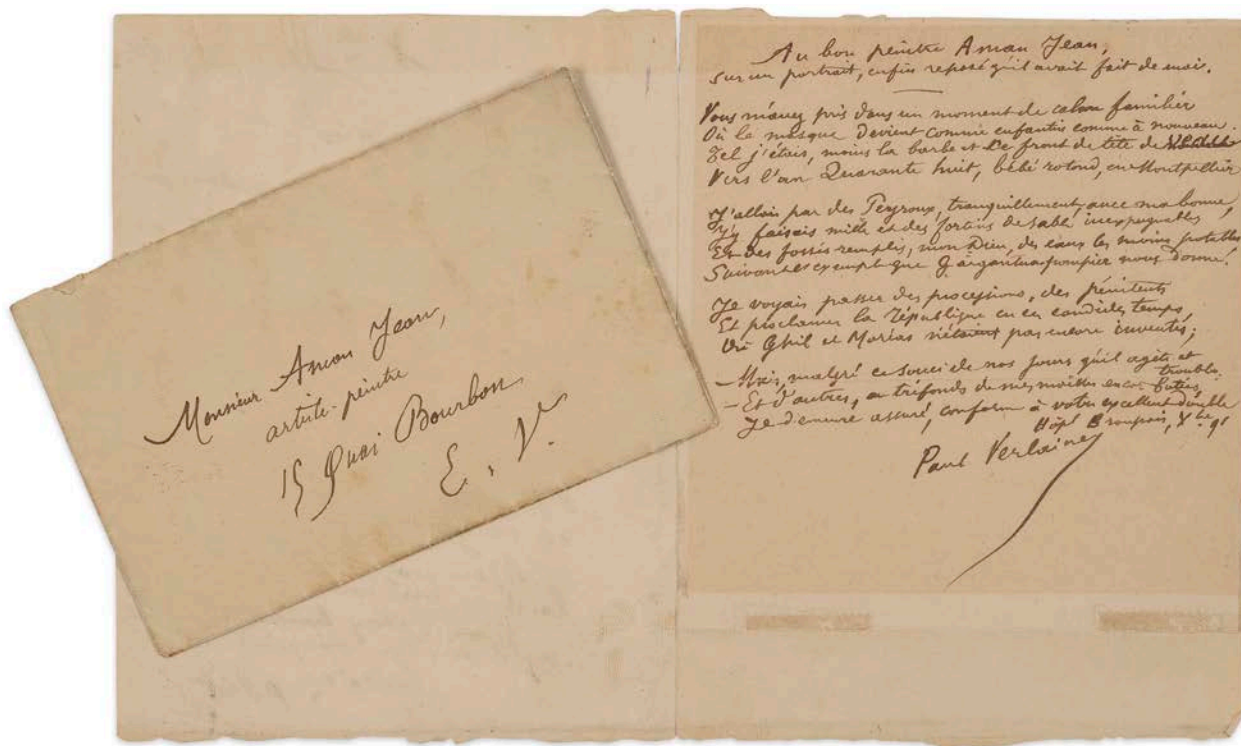 Monsieur Aman Jean,
artiste-peintre
15 Quai Bourbon
E. V.
Au bon peintre Aman Jean,
sur un portrait, enfin reposé qu'il avait fait de moi.
Vous m'avez pris dans un moment de calme familier
Où le masque devient comme enfantin comme à nouveau.
Tel j'étais, moins la barbe et ce front de tête de
Vers l'an Quarante huit, bébé rotond, en Montpellier
J'allais par des Peyroux, tranquillement, avec ma bonne,
J'y faisais mille et des fortins de sable inexpugnables
Et des fossés remplis, mon Dieu, des eaux les moins potables
Suivant l'exemple que Gargantua pompier nous donne.
Je voyais passer des processions, des pénitents
Et proclamer la République en ces candides temps,
Où Ghil et Moréas n'étaient pas encore inventés;
— Mais, malgré ce souci de nos jours qu'il agite et
trouble.
— Et d'autres, au tréfonds de mes moelles encor
Je demeure assuré, conforme à votre excellent double
Hôpl Broussais, Xbre 91
Paul Verlaine